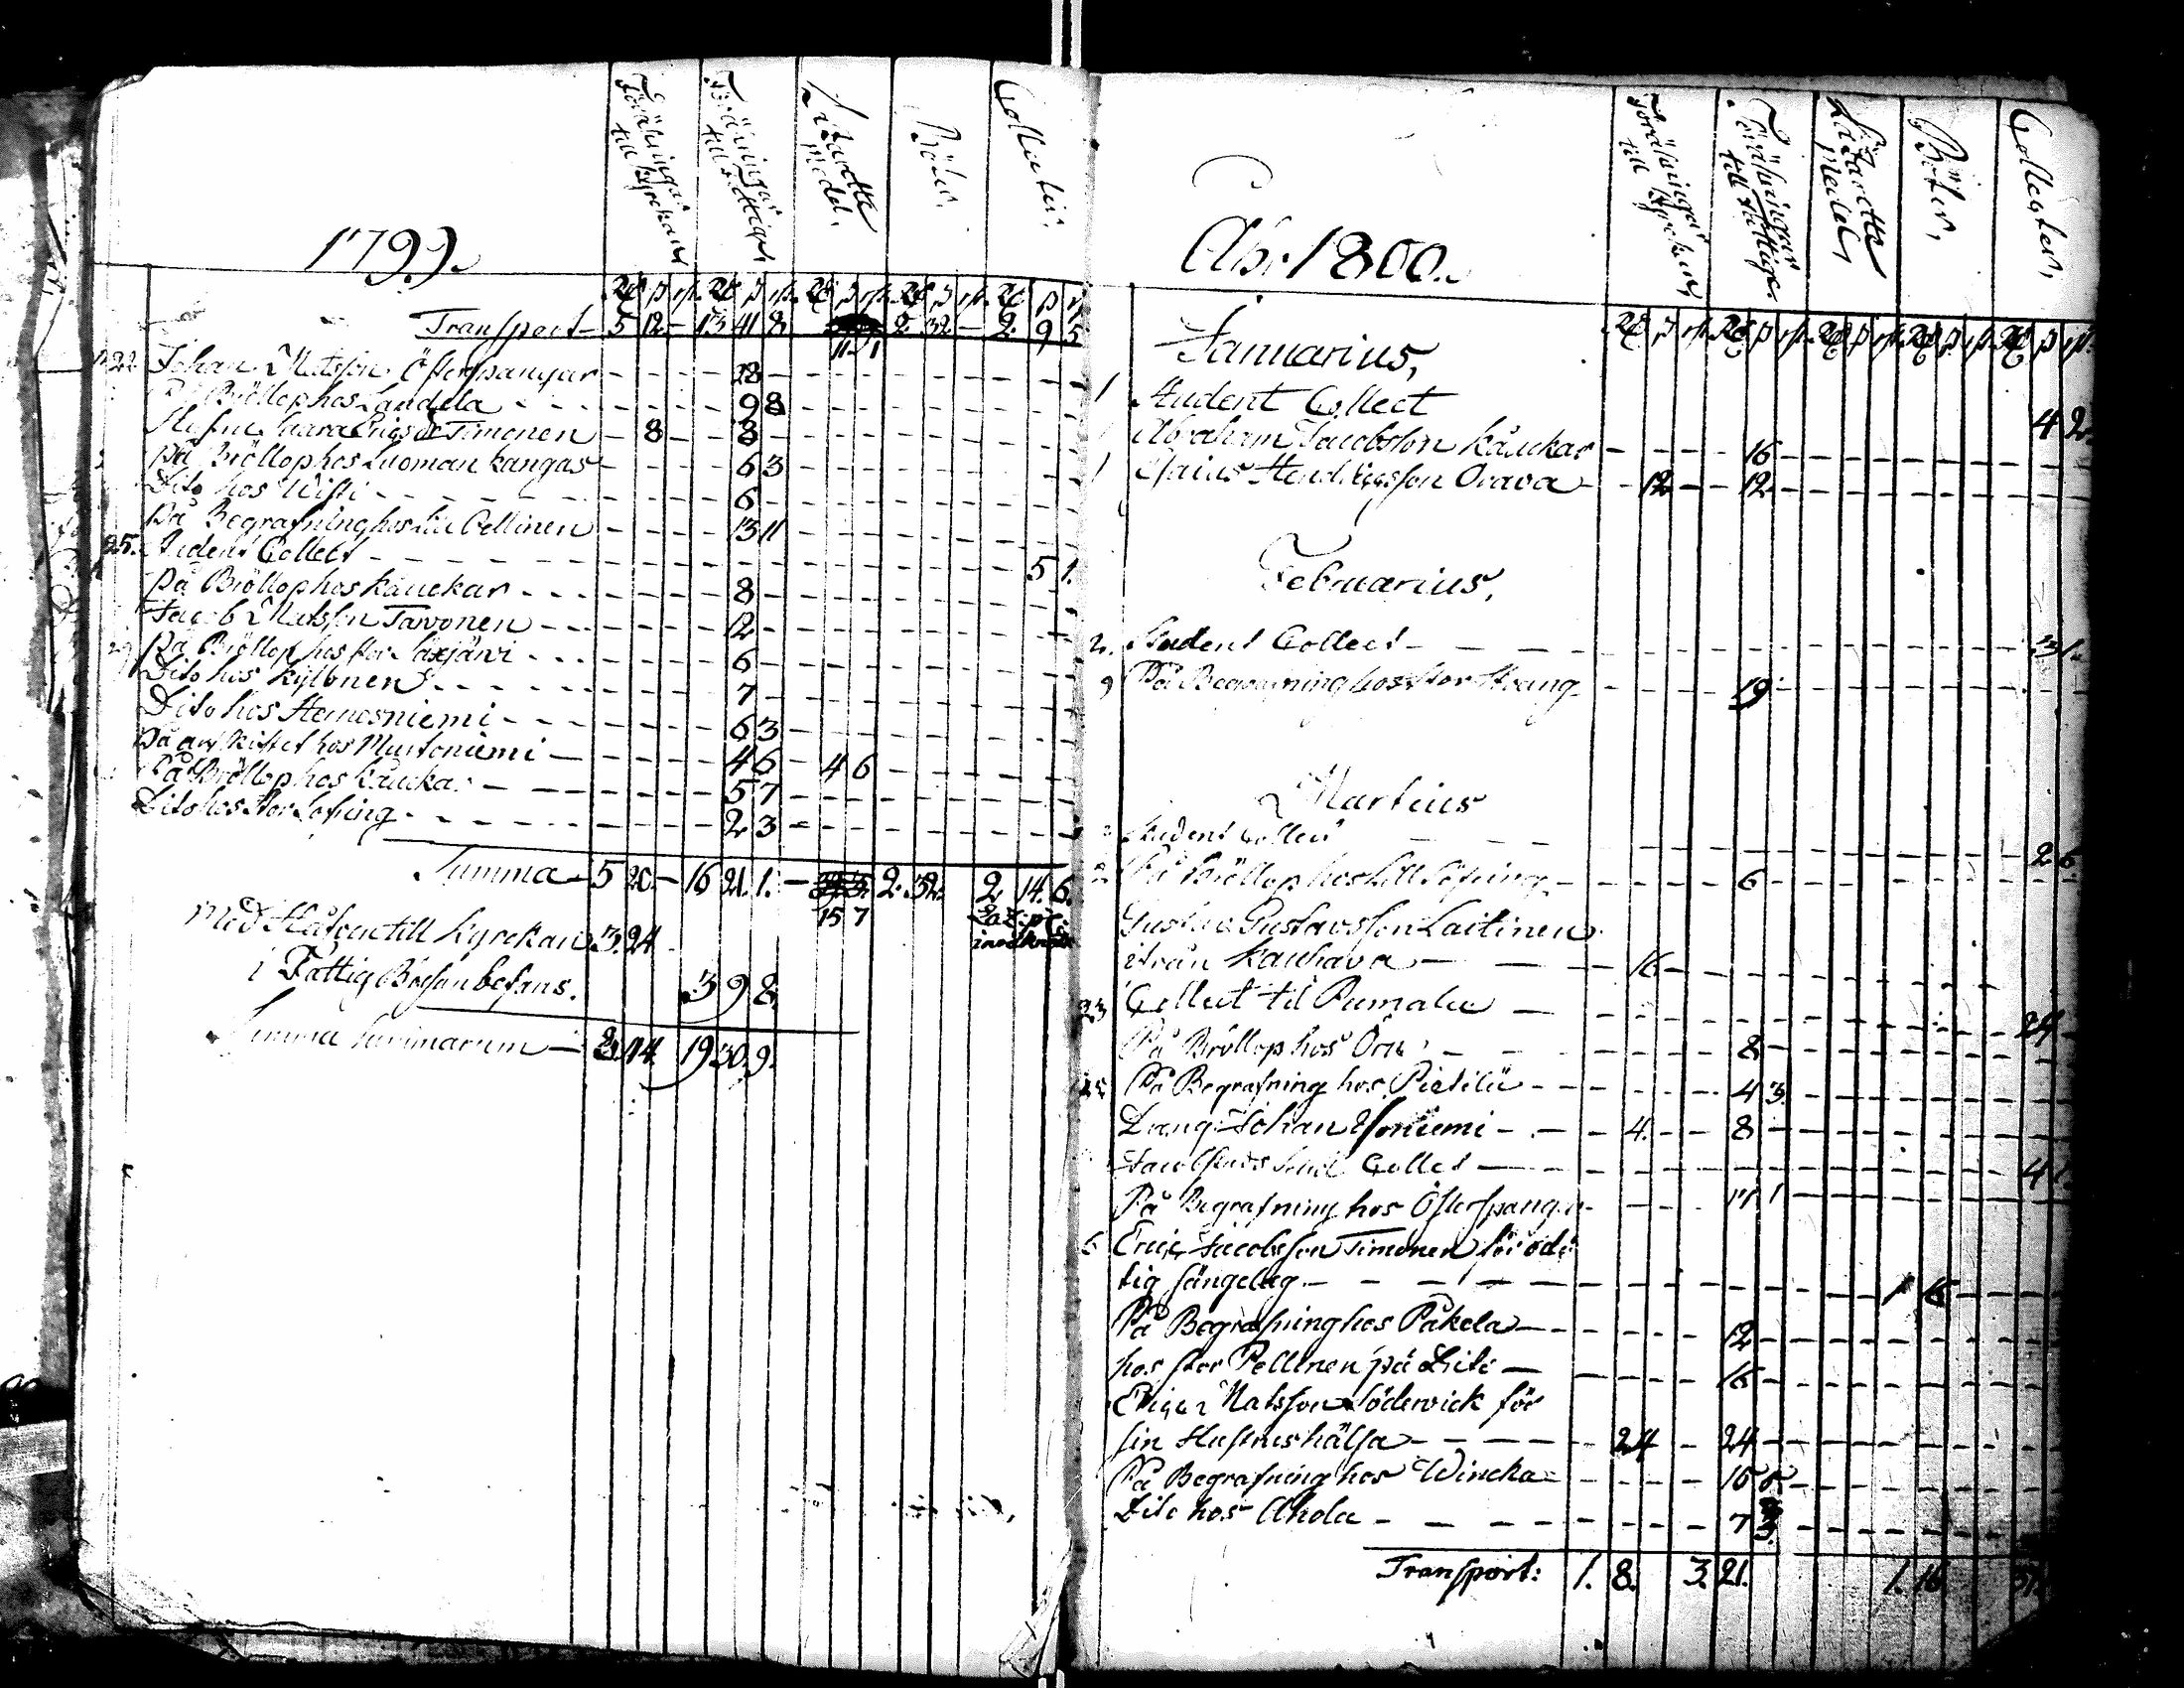 1799.
Föräringar till Kyrckan
Föräringar till Fattige
Lazaretts medel.
Böter.
Collecter.
Transport — 5 12 — 13 41 8. 11 1 2. 32 — 2. 9 5
22 Johan Matsson Österspangar - - - - 28 - - -
På Bröllop hos Landela - - - 9 8 - - -
Hustru Saara Timonen - 8 - - 8 - - -
På Bröllop hos Luoman kangas - - - 6 3 - - -
Dito hos Wisti - - - 6 - - -
På Begrafning hos Lill Pellinen - - - 13 11 - - -
25. Student Collect - - - 5 1.
På Bröllop hos Kauckar - - - 8 - - -
Jacob Matsson Tarvonen - - - 12 - - -
På Bröllop hos stor Säxjärvi - - - 6 - - -
Dito hos Kylönen - - - 7 - - -
Dito hos Hemesniemi - - - 6 3 - - -
På hos Murtoniemi - - - 4 6 - 4 6 - - -
På Bröllop hos Kaucka - - - 5 7 - - -
Dito hos stor Löfing - - - 2 3 - - -
Summa - 5 20. - 16 21. 1. - 15 7 2. 32. 2. 14. 6.
Med Håfven till Kyrckan 3. 24.
i Fattig Bössan befans. 3 9 8.
Summa Summarum — 8. 44. 19 30. 9.
Åhr 1800.
Föräringar till Kyrckan
Föräringar till Fattige.
Lazaretts Medel,
Böter,
Collecter,
Januarius,
1 Student Collect 4 2.
Abraham Jacobsson Kauckar - - - 16 - - -
1 Esaias Hendricsson Orava - - 12 - - 12 - - -
Februarius,
2. Student Collect - - - 3 1.
9 På Begrafning hos stor Strang - - - 19 - - -
Martius
Student Collect - - - 2 6.
På Bröllop hos Lill Löfing - - - 6 - - -
Gustav Gustavsson Laitinen
ifrån Kauhava - - - 16 - - -
23 Collect til Pumala - - - 24 -
På Bröllop hos Örn - - - 8 - - -
25 På Begrafning hos Pietilä - - - 4 3. - - -
Dräng Johan Isoniemi - - - 4. - - 8 - - -
Jacobstads Collect - - - 4 1.
På Begrafning hos Österspangar - - - 1 - - -
6 Eric Jacobsson Timonen för otid-
tig sängelag - - - 1 16 - - -
På Begrafning hos Pakela - - - 12 - - -
hos stor Pellinen på Dito - - - 16 - - -
Eric Matsson Söderwick för
sin Hustrus hälsa - - - 24 - 24 - - -
På Begrafning hos Wincka - - - 15 8 - - -
Dito hos Ahola - - - 7 3. - - -
Transport: 1. 8. 3. 21. 1. 16